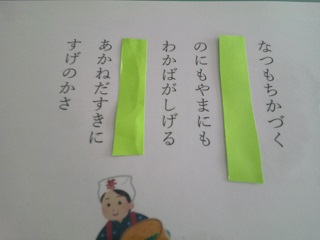 なつもちかづく
のにもやまにも
わかばがしげる
あかねだすきに
すげのかさ